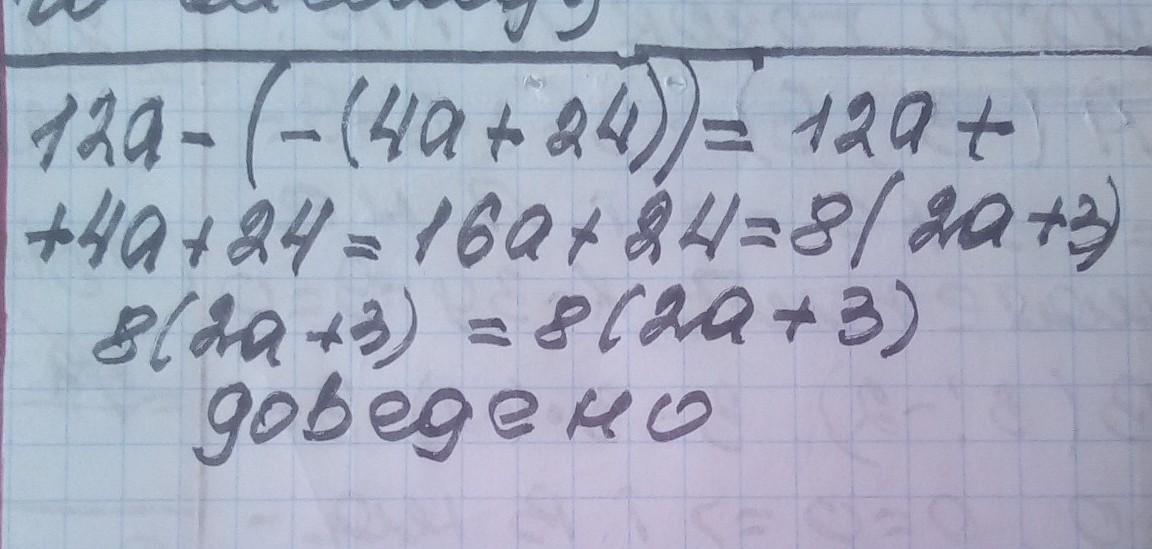 12a - (-(4a + 24)) = 12a +
+4a + 24 = 16a + 24 = 8(2a + 3)
8(2a + 3) = 8(2a + 3)
доведено